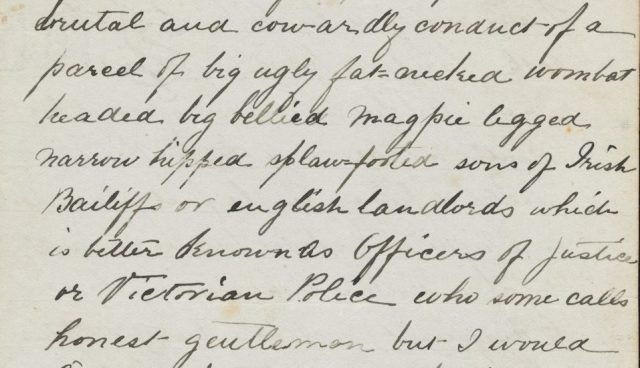 brutal and cowardly conduct of a
parcel of big ugly fat=necked wombat
headed big bellied magpie legged
narrow hipped splaw=footed sons of Irish
Bailiffs or english landlords which
is better known as Officers of Justice
or Victorian Police who some calls
honest gentlemen but I would